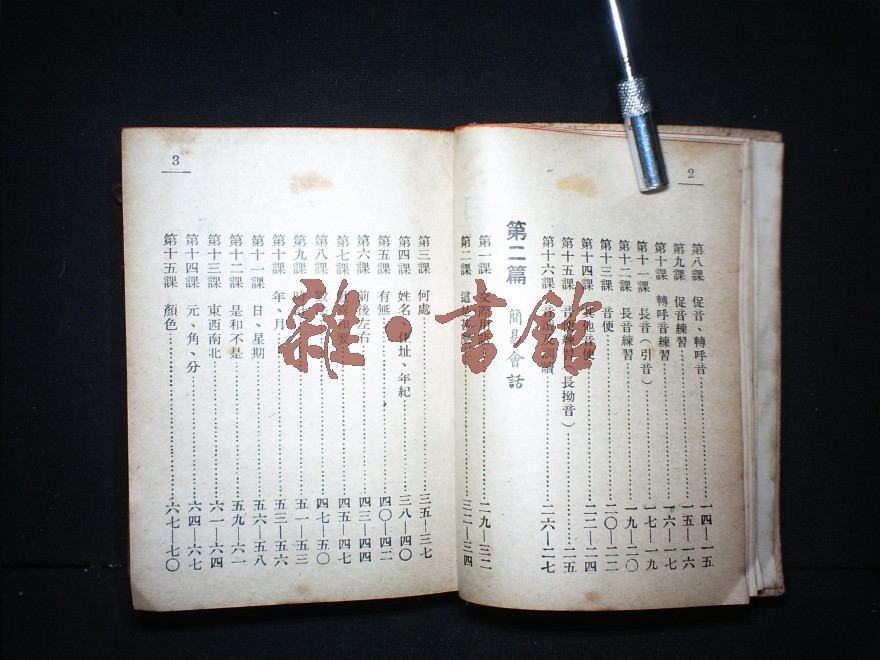 2
第八課 促音、轉呼音……一四—一五
第九課 促音練習……一五—一六
第十課 轉呼音練習……一六—一七
第十一課 長音（引音）……一七—一九
第十二課 長音練習……一九—二〇
第十三課 音便……二〇—二二
第十四課 其他音便……二二—二四
第十五課 音便練習（長拗音）……二五
第十六課 音讀及訓讀……二六—二七
第二篇 簡易會話
第一課……二九—三二
第二課 這……三二—三四
3
第三課 何處……三五—三七
第四課 姓名、住址、年紀……三八—四〇
第五課 有無……四〇—四二
第六課 前後左右……四三—四四
第七課……四五—四七
第八課 數……四七—五〇
第九課 時……五一—五三
第十課 年、月……五三—五六
第十一課 日、星期……五六—五八
第十二課 是和不是……五九—六一
第十三課 東西南北……六一—六四
第十四課 元、角、分……六四—六七
第十五課 顏色……六七—七〇
雜·書館